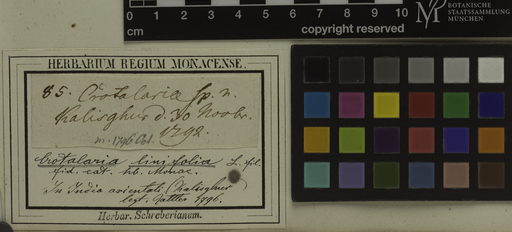 0 1 2 3 4 5 6 7 8 9 10
cm
copyright reserved
BOTANISCHE
STAATSSAMMLUNG
MÜNCHEN
HERBARIUM REGIUM MONACENSE.
85. Crotalaria sp. n.
Calisghur d. 30 Novbr.
1792.
Crotalaria linifolia L. fil.
fid. cat. hb. Monac.
In India orientali, Calisghur
1796.
Herbar. Schreberianum.